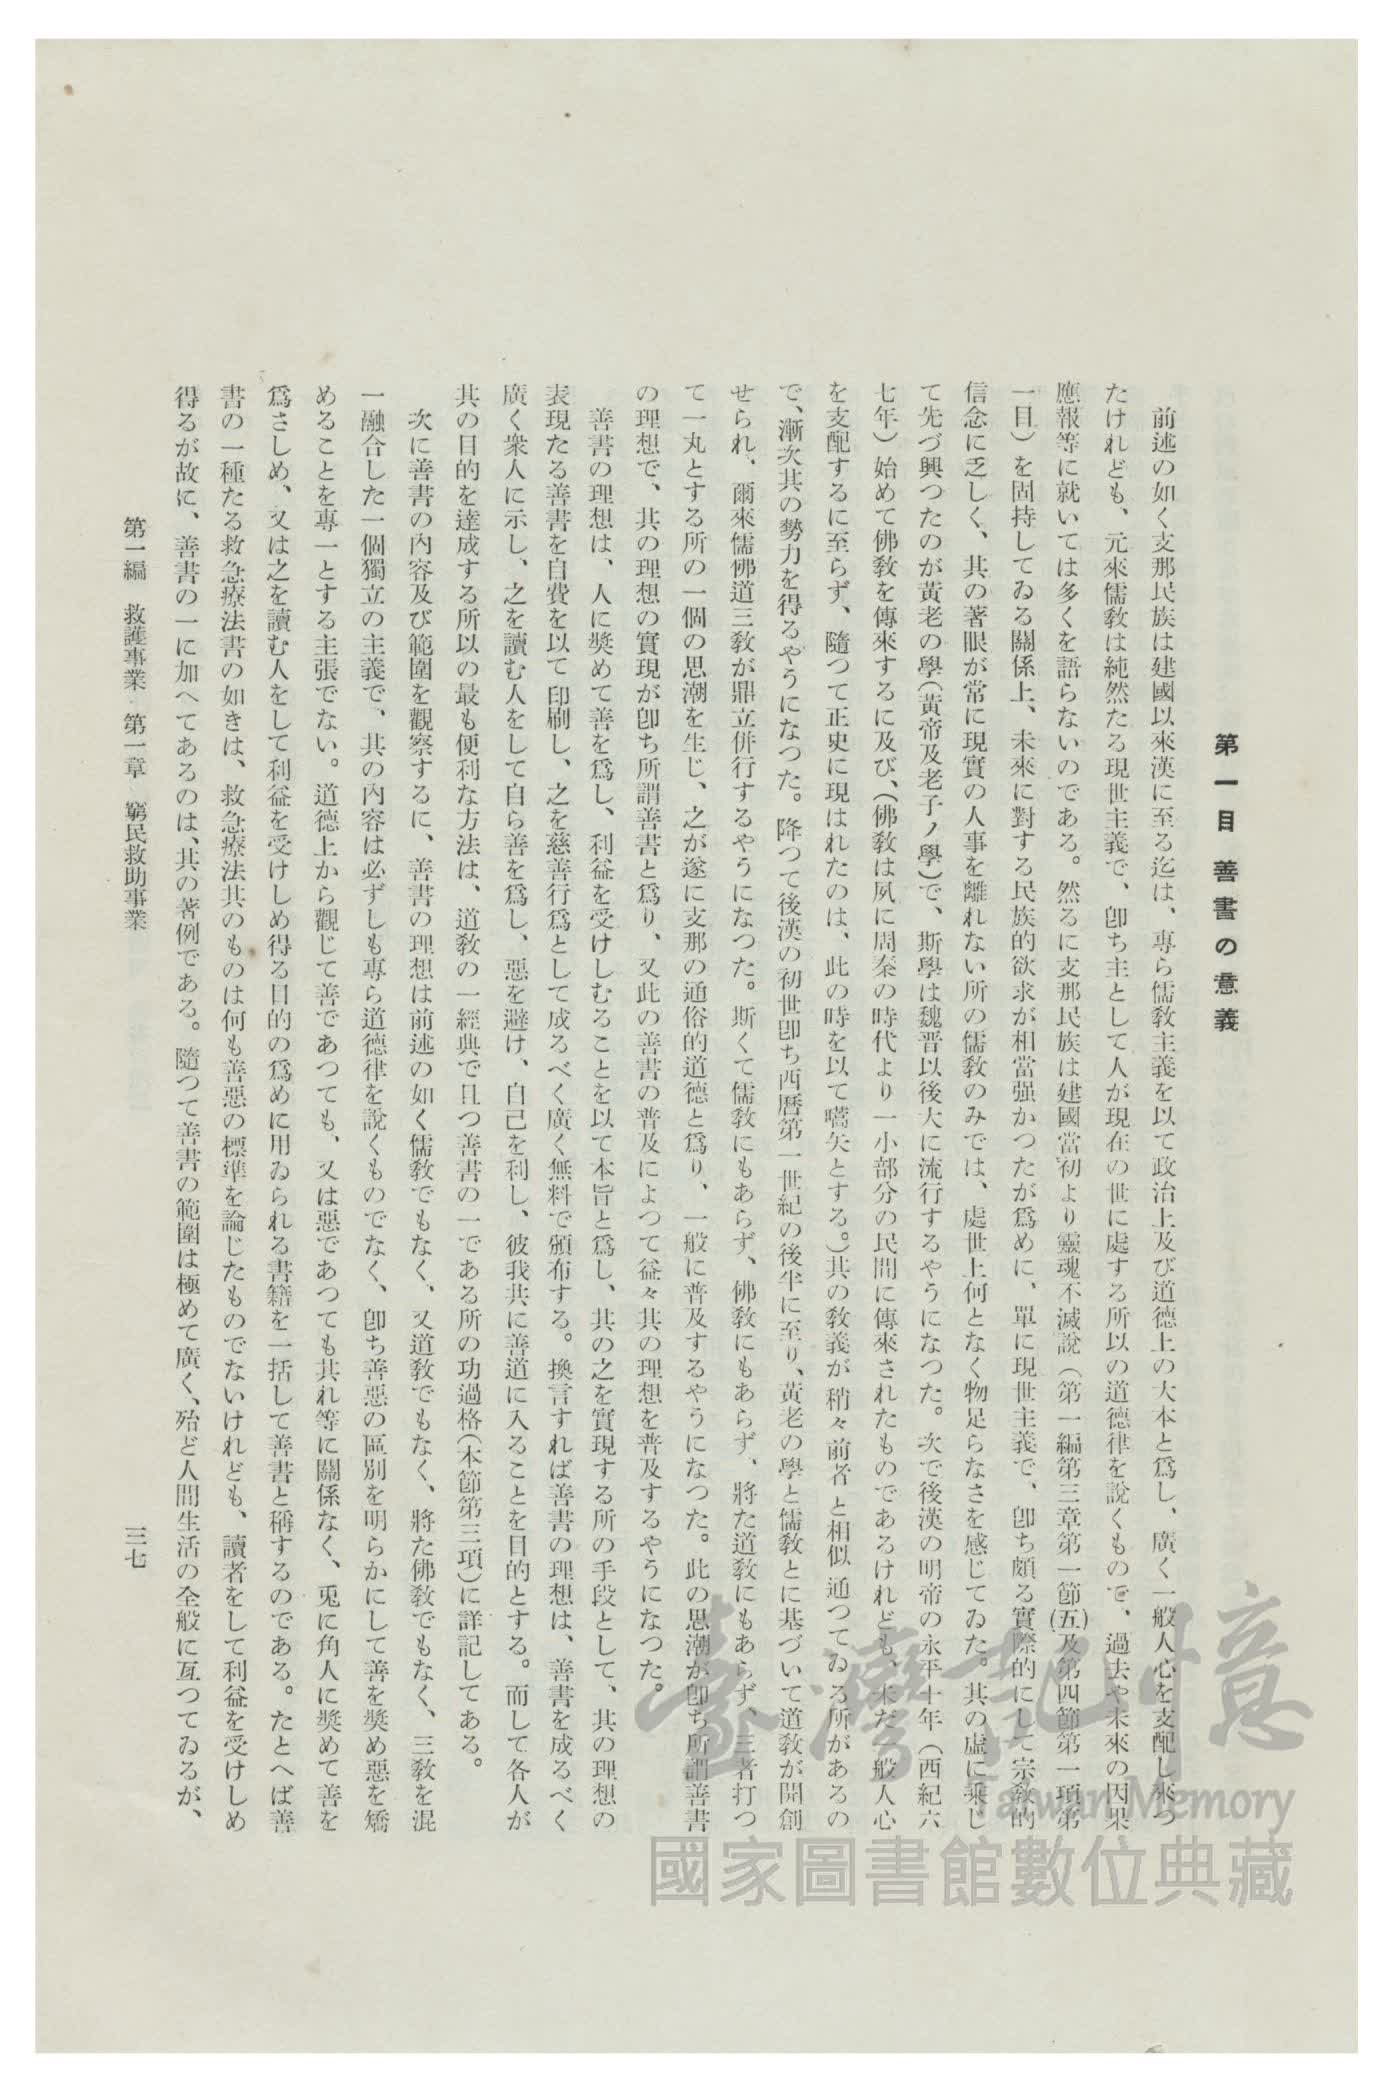 第一目 善書の意義
前述の如く支那民族は建國以來漢に至る迄は、專ら儒敎主義を以て政治上及び道德上の大本と爲し、廣く一般人心を支配し來つ
たけれども、元來儒敎は純然たる現世主義で、卽ち主として人が現在の世に處する所以の道德律を說くもので、過去や未來の因果
應報等に就いては多くを語らないのである。然るに支那民族は建國當初より靈魂不滅說(第一編第三章第一節(五)及第四節第一項第
一目)を固持してゐる關係上、未來に對する民族的欲求が相當强かつたが爲めに、單に現世主義で、卽ち頗る實際的にして宗敎的
信念に乏しく、其の著眼が常に現實の人事を離れない所の儒敎のみでは、處世上何となく物足らなさを感じてゐた。其の虛に乘じ
て先づ興つたのが黃老の學(黃帝及老子ノ學)で、斯學は魏晋以後大に流行するやうになつた。次で後漢の明帝の永平十年(西紀六
七年)始めて佛敎を傳來するに及び、(佛敎は夙に周秦の時代より一小部分の民間に傳來されたものであるけれども、未だ一般人心
を支配するに至らず、隨つて正史に現はれたのは、此の時を以て嚆矢とする。)其の敎義が稍々前者と相似通つてゐる所があるの
で、漸次其の勢力を得るやうになつた。降つて後漢の初世卽ち西曆第一世紀の後半に至り、黃老の學と儒敎とに基づいて道敎が開創
せられ、爾來儒佛道三敎が鼎立併行するやうになつた。斯くて儒敎にもあらず、佛敎にもあらず、將た道敎にもあらず、三者打つ
て一丸とする所の一個の思潮を生じ、之が遂に支那の通俗的道德と爲り、一般に普及するやうになつた。此の思潮が卽ち所謂善書
の理想で、其の理想の實現が卽ち所謂善書と爲り、又此の善書の普及によつて益々其の理想を普及するやうになつた。
善書の理想は、人に奬めて善を爲し、利益を受けしむることを以て本旨と爲し、其の之を實現する所の手段として、其の理想の
表現たる善書を自費を以て印刷し、之を慈善行爲として成るべく廣く無料で頒布する。換言すれば善書の理想は、善書を成るべく
廣く衆人に示し、之を讀む人をして自ら善を爲し、惡を避け、自己を利し、彼我共に善道に入ることを目的とする。而して各人が
其の目的を達成する所以の最も便利な方法は、道敎の一經典で且つ善書の一である所の功過格(本節第三項)に詳記してある。
次に善書の內容及び範圍を觀察するに、善書の理想は前述の如く儒敎でもなく、又道敎でもなく、將た佛敎でもなく、三敎を混
一融合した一個獨立の主義で、其の內容は必ずしも專ら道德律を說くものでなく、卽ち善惡の區別を明らかにして善を奬め惡を矯
めることを專一とする主張でない。道德上から觀じて善であつても、又は惡であつても其れ等に關係なく、兎に角人に奬めて善を
爲さしめ、又は之を讀む人をして利益を受けしめ得る目的の爲めに用ゐられる書籍を一括して善書と稱するのである。たとへば善
書の一種たる救急療法書の如きは、救急療法其のものは何も善惡の標準を論じたものでないけれども、讀者をして利益を受けしめ
得るが故に、善書の一に加へてあるのは、其の著例である。隨つて善書の範圍は極めて廣く、殆ど人間生活の全般に亙つてゐるが、
第一編 救護事業 第一章 窮民救助事業
三七
臺灣記憶
Taiwan Memory
國家圖書館數位典藏